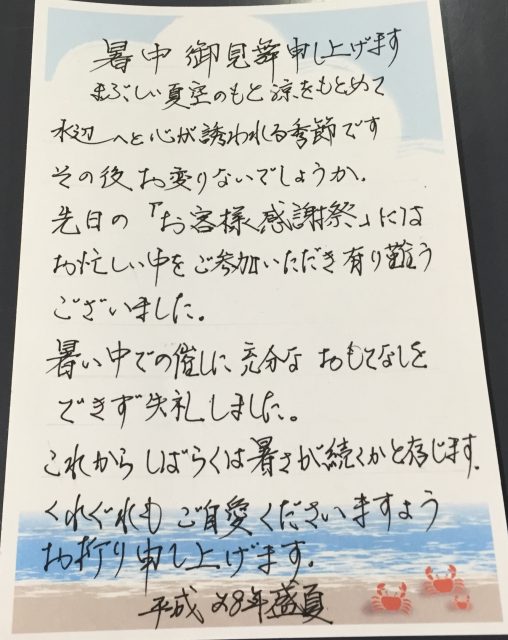 暑中御見舞申し上げます
まぶしい夏空のもと涼をもとめて
水辺へと心が誘われる季節です
その後お変りないでしょうか.
先日の「お客様感謝祭」には
お忙しい中をご参加いただき有り難う
ございました。
暑い中での催しに充分なおもてなしを
できず失礼しました。
これからしばらくは暑さが続くかと存じます.
くれぐれもご自愛くださいますよう
お祈り申し上げます.
平成28年盛夏